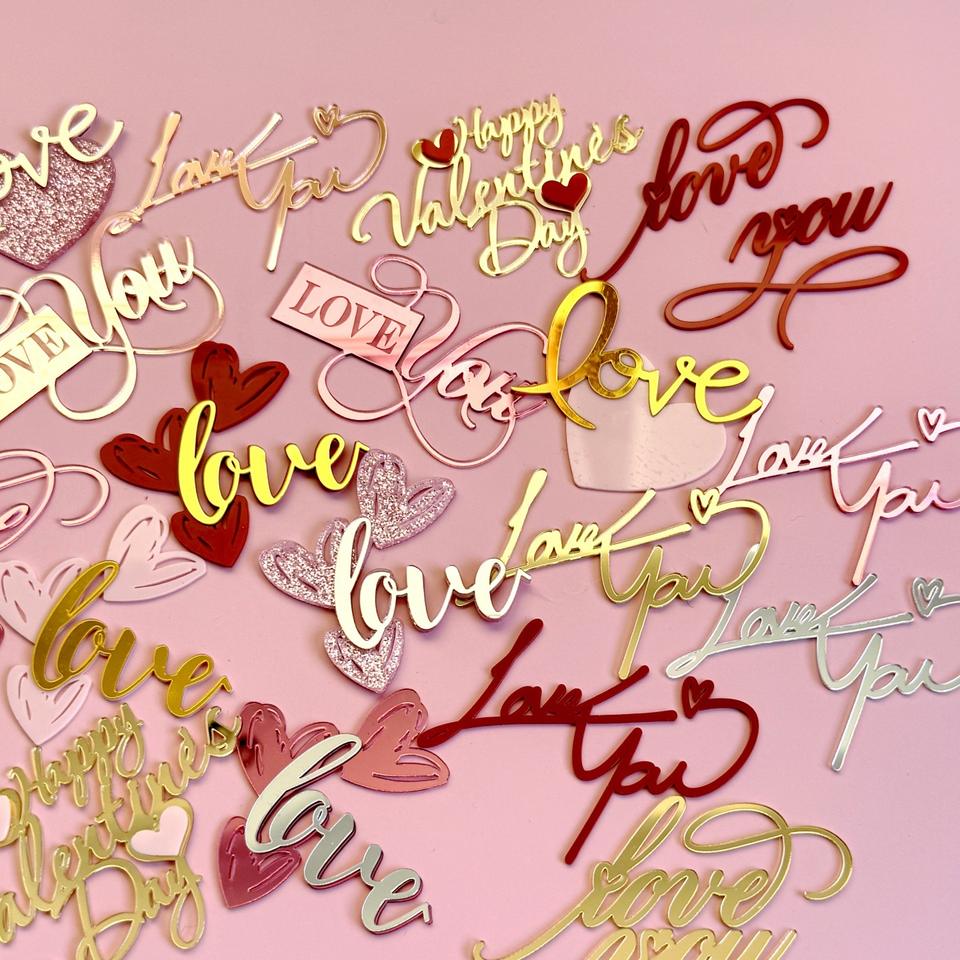 love
Love
You
Happy
Valentines
Day
love
you
LOVE
You
LOVE
You
love
love
Love
You
love
Love
You
love
Love
You
Happy
Valentines
Day
love
Love
You
love
you